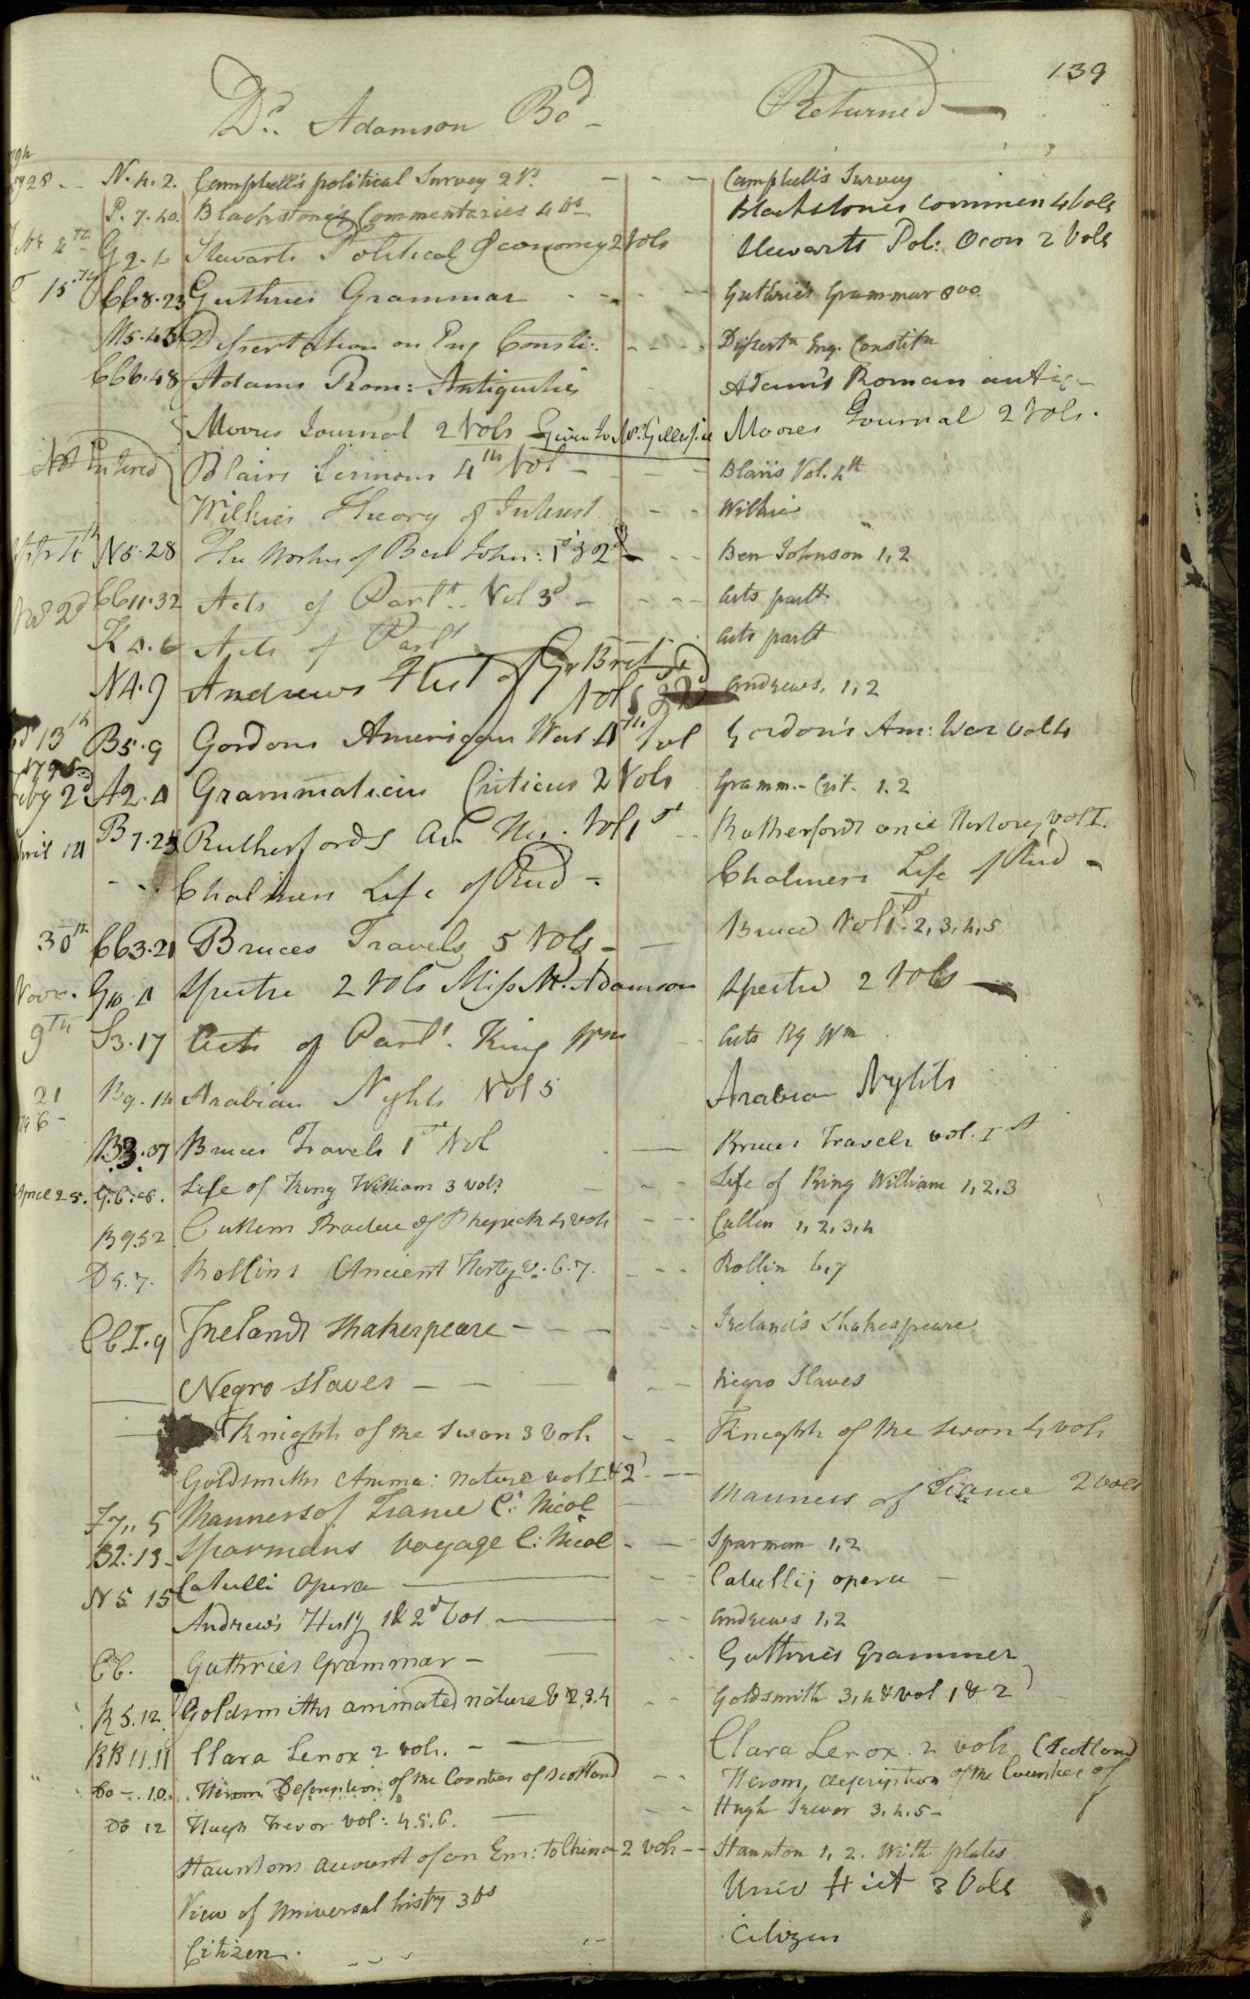 139
Dr. Adamson Bod Returned
N.4.2. Campbell's political Survey 2 Vs. Campbell's Survey
P.7.40 Blackstone's Commentaries 4 Vs Blackstones Commen 4 Vols
4th G2.4 Stewarts Political Oeconomy 2 Vols Stewarts Pol: Ocon 2 Vols
15th CC8.23 Guthries Grammar Guthrie's Grammar 8vo
M5.43 Dissertation on Eng Consti: Disserta Eng. Constitn
CC6.48 Adams Rom: Antiquities Adam's Roman antiq
Moores Journal 2 Vols Given to Mr. Gillespie Moores Journal 2 Vols.
Not Entered Blairs Sermons 4th Vol Blairs Vol. 4th
Wilkies Theory of Interest Wilkie
4th N5.28 The Works of Ben John: 1st & 2d Ben Johnson 1, 2
2d CC11.32 Acts of Parlt. Vol 3d Acts parlt
K4.6 Acts of Parlt Acts parlt
N4.9 Andrews Hist of Gr Brit Andrews, 1, 2
Vol 1st 2d
13th B5.9 Gordons American War 4th Vol Gordon's Am: War vol 4
1795
Feby 2d A2.4 Grammaticus Criticus 2 Vols Gramm. Crit. 1.2
April 14 B7.23 Rutherfords An His. Vol 1st Rutherfords anct History vol I.
Chalmers Life of Rud Chalmers Life of Rud
30th CC3.21 Bruces Travels 5 Vols Bruce Vol 1st. 2, 3, 4, 5
Novr. G10.4 Spectre 2 Vols Miss M. Adamson Spectre 2 Vols
9th S3.17 Acts of Parlt. King Wm Acts Kg Wm
21 R9.14 Arabian Nyhts Vol 5 Arabian Nyhts
6
B3.37 Bruces Travels 1st Vol Bruces Travels vol. Ist
Aprile 25. G.6.8. Life of King William 3 vols Life of King William 1, 2, 3
R952 Cullens Practice of Physick 4 vols Cullen 1, 2, 3, 4
D5.7. Rollins Ancient Histy v. 6.7. Rollin 6, 7
CC I.9 Irelands Shakespeare Ireland's Shakespeare
Negro Slaves Negro Slaves
Knights of the Swan 3 vols Knights of the Swan 4 vols
Goldsmiths Anima: Nature vol I & 2
F7,, 5 Manners of France C: Nicol Manners of France 2 vols
B2:13 Sparmans Voyage C: Nicol Sparman 1, 2
N5 15 Catulli Opera Catullij opera
Andrew's Histy 1 & 2d Vol Andrews 1, 2
CC. Guthries Grammar Guthries Grammer
R5.12. Goldsmiths animated nature V 2.3.4 Goldsmith 3, 4 & vol 1 & 2
RR 11.11 Clara Lenox 2 vols. Clara Lenox. 2 vols
Do 10. Herons Description of the Counties of Scotland Heron, description of the Counties of (Scotland)
Do 12 Hugh Trevor vol: 4.5.6. Hugh Trevor 3.4.5
Stauntons account of an Em: to China 2 vols Staunton 1, 2. With plates
View of Universal histy 3 Vs Univ Hist 3 Vols
Citizen. Citizen